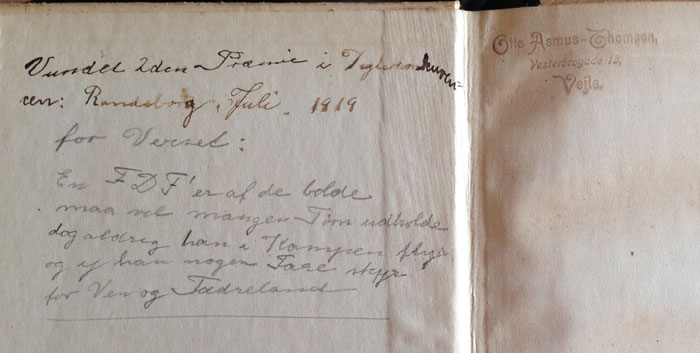 Vundet 2den Præmie i Digterkonkuren-
cen: Randsborg, Juli. 1919
for Verset:
En FDF'er af de bolde
maa vel mangen Tørn udholde
dog aldrig han i Kampen flyr
og ej han nogen Fare skyr
for Ven og Fædreland
Otto Asmus-Thomsen,
Vesterbrogade 12,
Vejle.